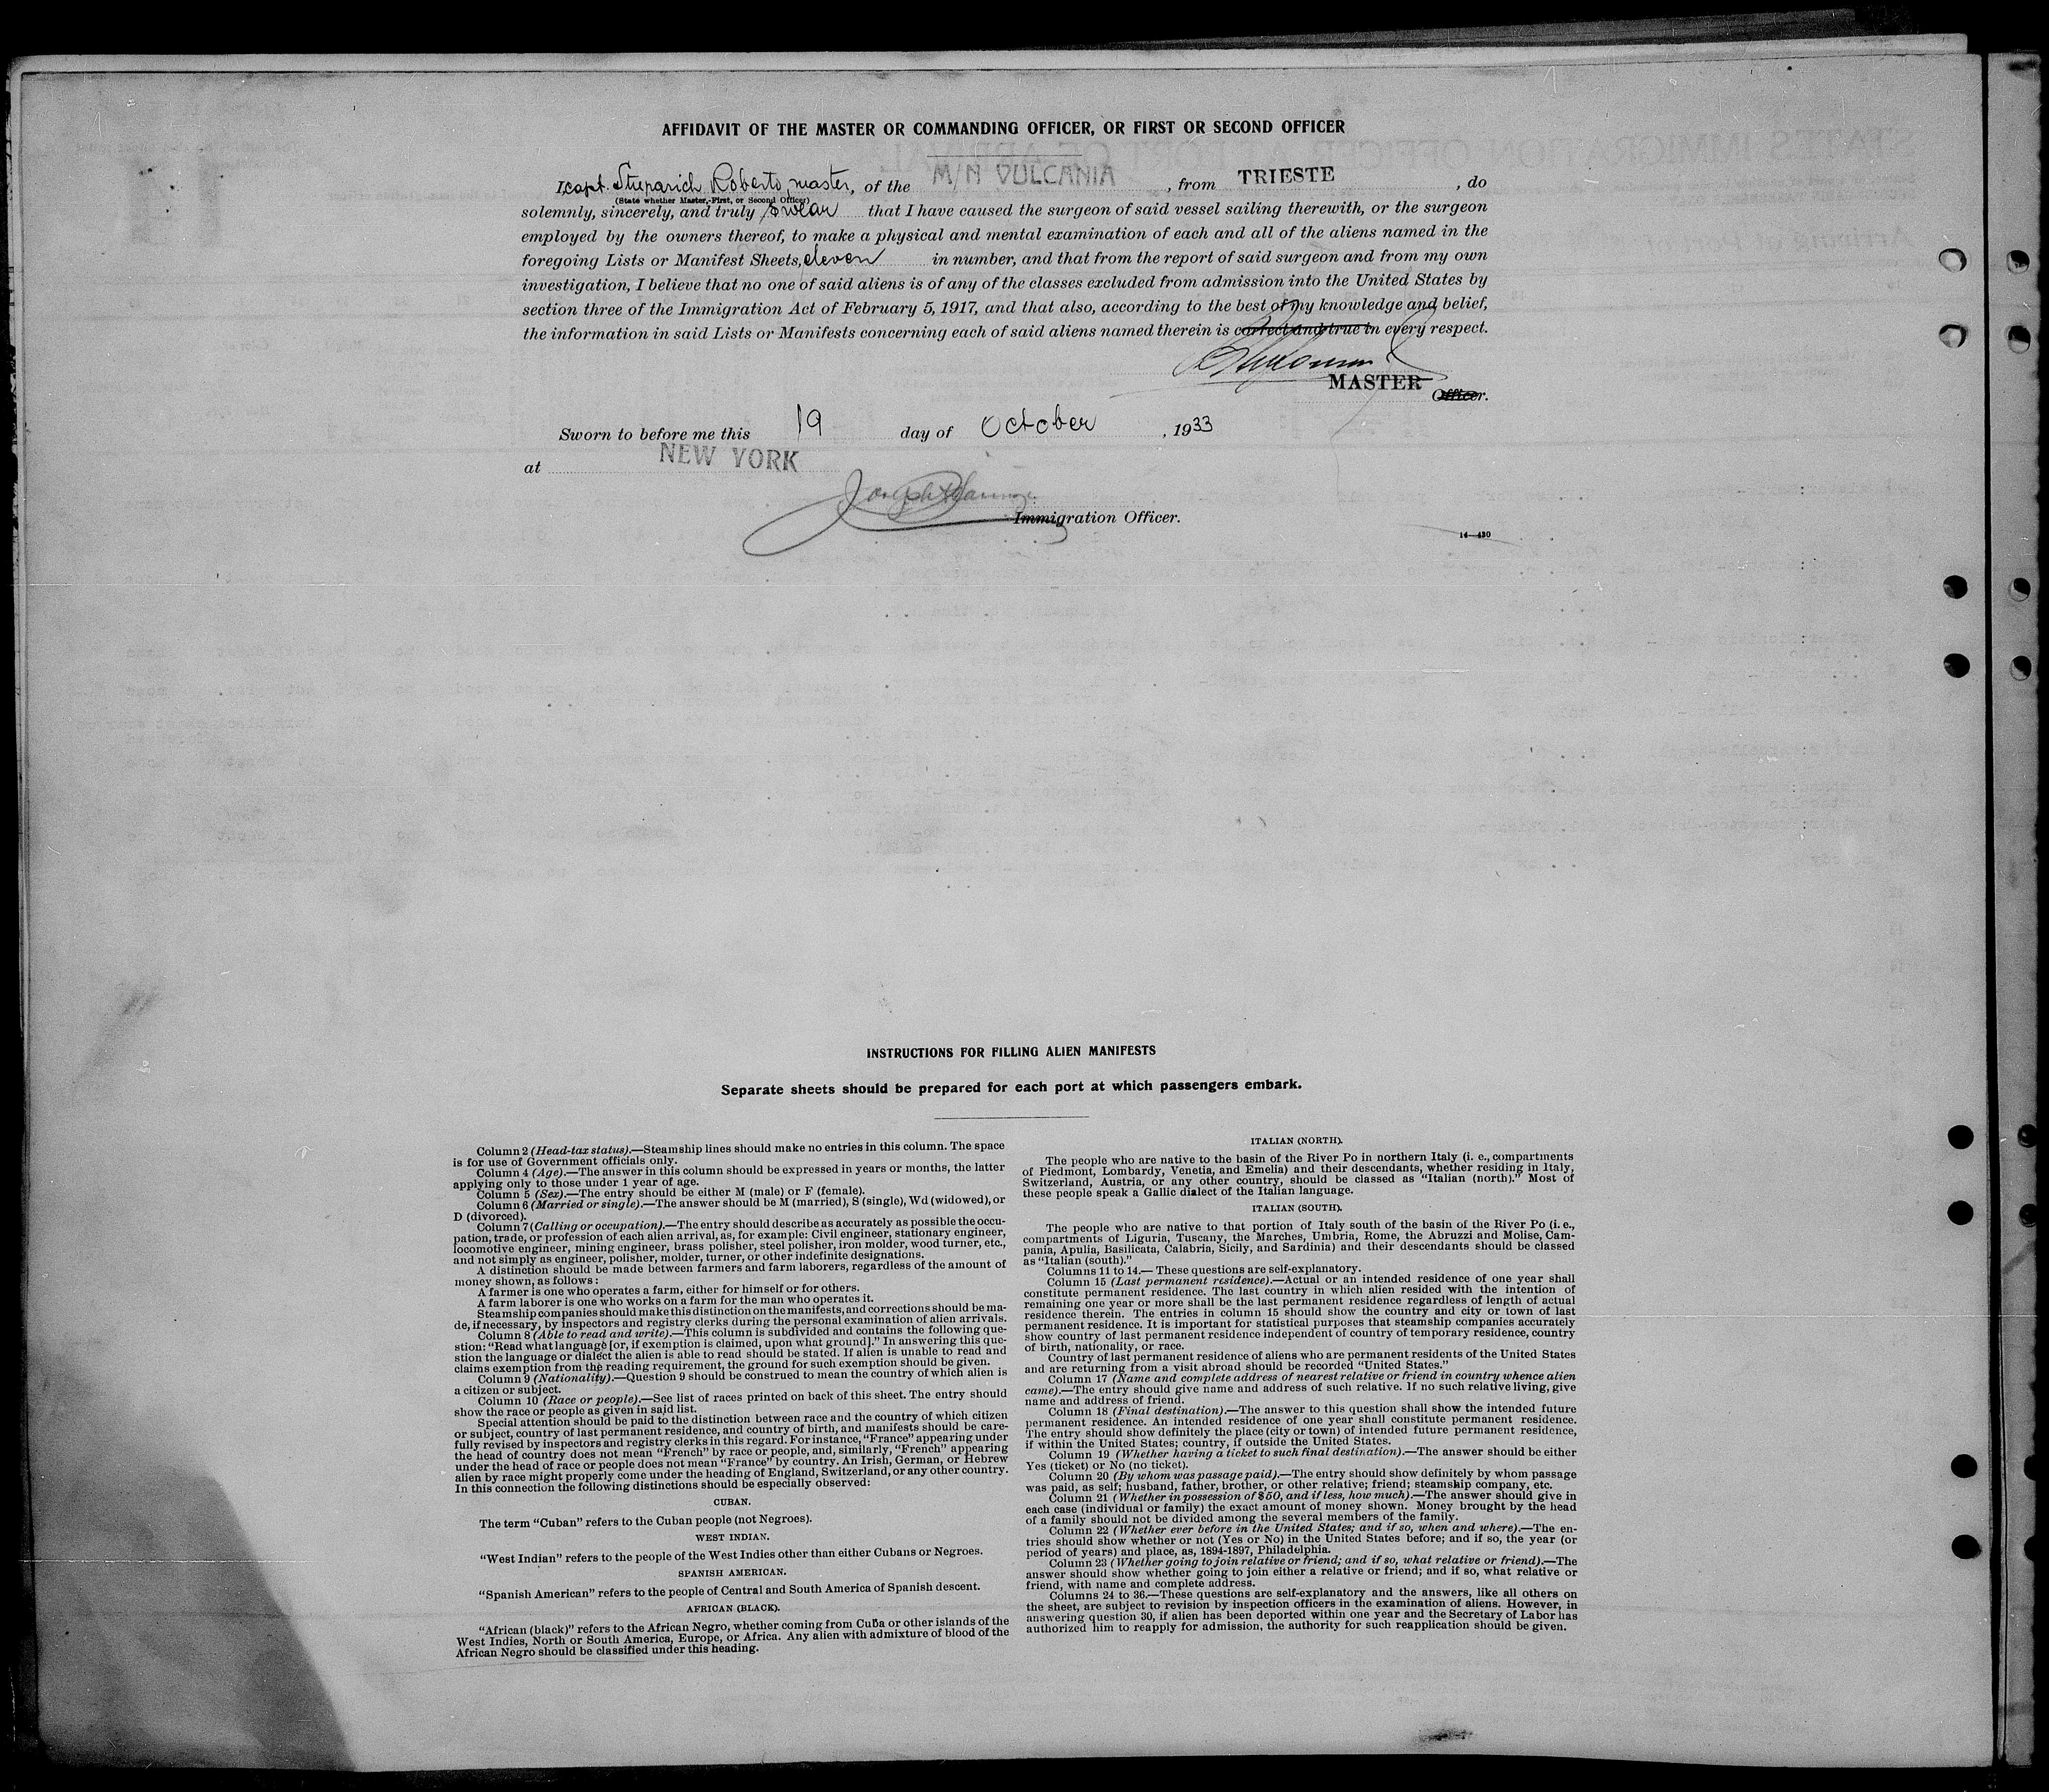 AFFIDAVIT OF THE MASTER OR COMMANDING OFFICER, OR FIRST OR SECOND OFFICER
I, capt. Stuparich Roberto, master, of the M/N VULCANIA, from TRIESTE, do
(State whether Master, First, or Second Officer)
solemnly, sincerely, and truly swear that I have caused the surgeon of said vessel sailing therewith, or the surgeon
employed by the owners thereof, to make a physical and mental examination of each and all of the aliens named in the
foregoing Lists or Manifest Sheets, eleven in number, and that from the report of said surgeon and from my own
investigation, I believe that no one of said aliens is of any of the classes excluded from admission into the United States by
section three of the Immigration Act of February 5, 1917, and that also, according to the best of my knowledge and belief,
the information in said Lists or Manifests concerning each of said aliens named therein is correct and true in every respect.
MASTER
Officer.
Sworn to before me this 19 day of October, 1933
at NEW YORK
Immigration Officer.
14—430
INSTRUCTIONS FOR FILLING ALIEN MANIFESTS
Separate sheets should be prepared for each port at which passengers embark.
Column 2 (Head-tax status).—Steamship lines should make no entries in this column. The space
is for use of Government officials only.
Column 4 (Age).—The answer in this column should be expressed in years or months, the latter
applying only to those under 1 year of age.
Column 5 (Sex).—The entry should be either M (male) or F (female).
Column 6 (Married or single).—The answer should be M (married), S (single), Wd (widowed), or
D (divorced).
Column 7 (Calling or occupation).—The entry should describe as accurately as possible the occu-
pation, trade, or profession of each alien arrival, as, for example: Civil engineer, stationary engineer,
locomotive engineer, mining engineer, brass polisher, steel polisher, iron molder, wood turner, etc.,
and not simply as engineer, polisher, molder, turner, or other indefinite designations.
A distinction should be made between farmers and farm laborers, regardless of the amount of
money shown, as follows:
A farmer is one who operates a farm, either for himself or for others.
A farm laborer is one who works on a farm for the man who operates it.
Steamship companies should make this distinction on the manifests, and corrections should be ma-
de, if necessary, by inspectors and registry clerks during the personal examination of alien arrivals.
Column 8 (Able to read and write).—This column is subdivided and contains the following que-
stion: “Read what language [or, if exemption is claimed, upon what ground].” In answering this que-
stion the language or dialect the alien is able to read should be stated. If alien is unable to read and
claims exemption from the reading requirement, the ground for such exemption should be given.
Column 9 (Nationality).—Question 9 should be construed to mean the country of which alien is
a citizen or subject.
Column 10 (Race or people).—See list of races printed on back of this sheet. The entry should
show the race or people as given in said list.
Special attention should be paid to the distinction between race and the country of which citizen
or subject, country of last permanent residence, and country of birth, and manifests should be care-
fully revised by inspectors and registry clerks in this regard. For instance, “France” appearing under
the head of country does not mean “French” by race or people, and, similarly, “French” appearing
under the head of race or people does not mean “France” by country. An Irish, German, or Hebrew
alien by race might properly come under the heading of England, Switzerland, or any other country.
In this connection the following distinctions should be especially observed:
CUBAN.
The term “Cuban” refers to the Cuban people (not Negroes).
WEST INDIAN.
“West Indian” refers to the people of the West Indies other than either Cubans or Negroes.
SPANISH AMERICAN.
“Spanish American” refers to the people of Central and South America of Spanish descent.
AFRICAN (BLACK).
“African (black)” refers to the African Negro, whether coming from Cuba or other islands of the
West Indies, North or South America, Europe, or Africa. Any alien with admixture of blood of the
African Negro should be classified under this heading.
ITALIAN (NORTH).
The people who are native to the basin of the River Po in northern Italy (i. e., compartments
of Piedmont, Lombardy, Venetia, and Emelia) and their descendants, whether residing in Italy,
Switzerland, Austria, or any other country, should be classed as “Italian (north).” Most of
these people speak a Gallic dialect of the Italian language.
ITALIAN (SOUTH).
The people who are native to that portion of Italy south of the basin of the River Po (i. e.,
compartments of Liguria, Tuscany, the Marches, Umbria, Rome, the Abruzzi and Molise, Cam-
pania, Apulia, Basilicata, Calabria, Sicily, and Sardinia) and their descendants should be classed
as “Italian (south).”
Columns 11 to 14.— These questions are self-explanatory.
Column 15 (Last permanent residence).—Actual or an intended residence of one year shall
constitute permanent residence. The last country in which alien resided with the intention of
remaining one year or more shall be the last permanent residence regardless of length of actual
residence therein. The entries in column 15 should show the country and city or town of last
permanent residence. It is important for statistical purposes that steamship companies accurately
show country of last permanent residence independent of country of temporary residence, country
of birth, nationality, or race.
Country of last permanent residence of aliens who are permanent residents of the United States
and are returning from a visit abroad should be recorded “United States.”
Column 17 (Name and complete address of nearest relative or friend in country whence alien
came).—The entry should give name and address of such relative. If no such relative living, give
name and address of friend.
Column 18 (Final destination).—The answer to this question shall show the intended future
permanent residence. An intended residence of one year shall constitute permanent residence.
The entry should show definitely the place (city or town) of intended future permanent residence,
if within the United States; country, if outside the United States.
Column 19 (Whether having a ticket to such final destination).—The answer should be either
Yes (ticket) or No (no ticket).
Column 20 (By whom was passage paid).—The entry should show definitely by whom passage
was paid, as self; husband, father, brother, or other relative; friend; steamship company, etc.
Column 21 (Whether in possession of $50, and if less, how much).—The answer should give in
each case (individual or family) the exact amount of money shown. Money brought by the head
of a family should not be divided among the several members of the family.
Column 22 (Whether ever before in the United States; and if so, when and where).—The en-
tries should show whether or not (Yes or No) in the United States before; and if so, the year (or
period of years) and place, as, 1894-1897, Philadelphia.
Column 23 (Whether going to join relative or friend; and if so, what relative or friend).—The
answer should show whether going to join either a relative or friend; and if so, what relative or
friend, with name and complete address.
Columns 24 to 36.—These questions are self-explanatory and the answers, like all others on
the sheet, are subject to revision by inspection officers in the examination of aliens. However, in
answering question 30, if alien has been deported within one year and the Secretary of Labor has
authorized him to reapply for admission, the authority for such reapplication should be given.